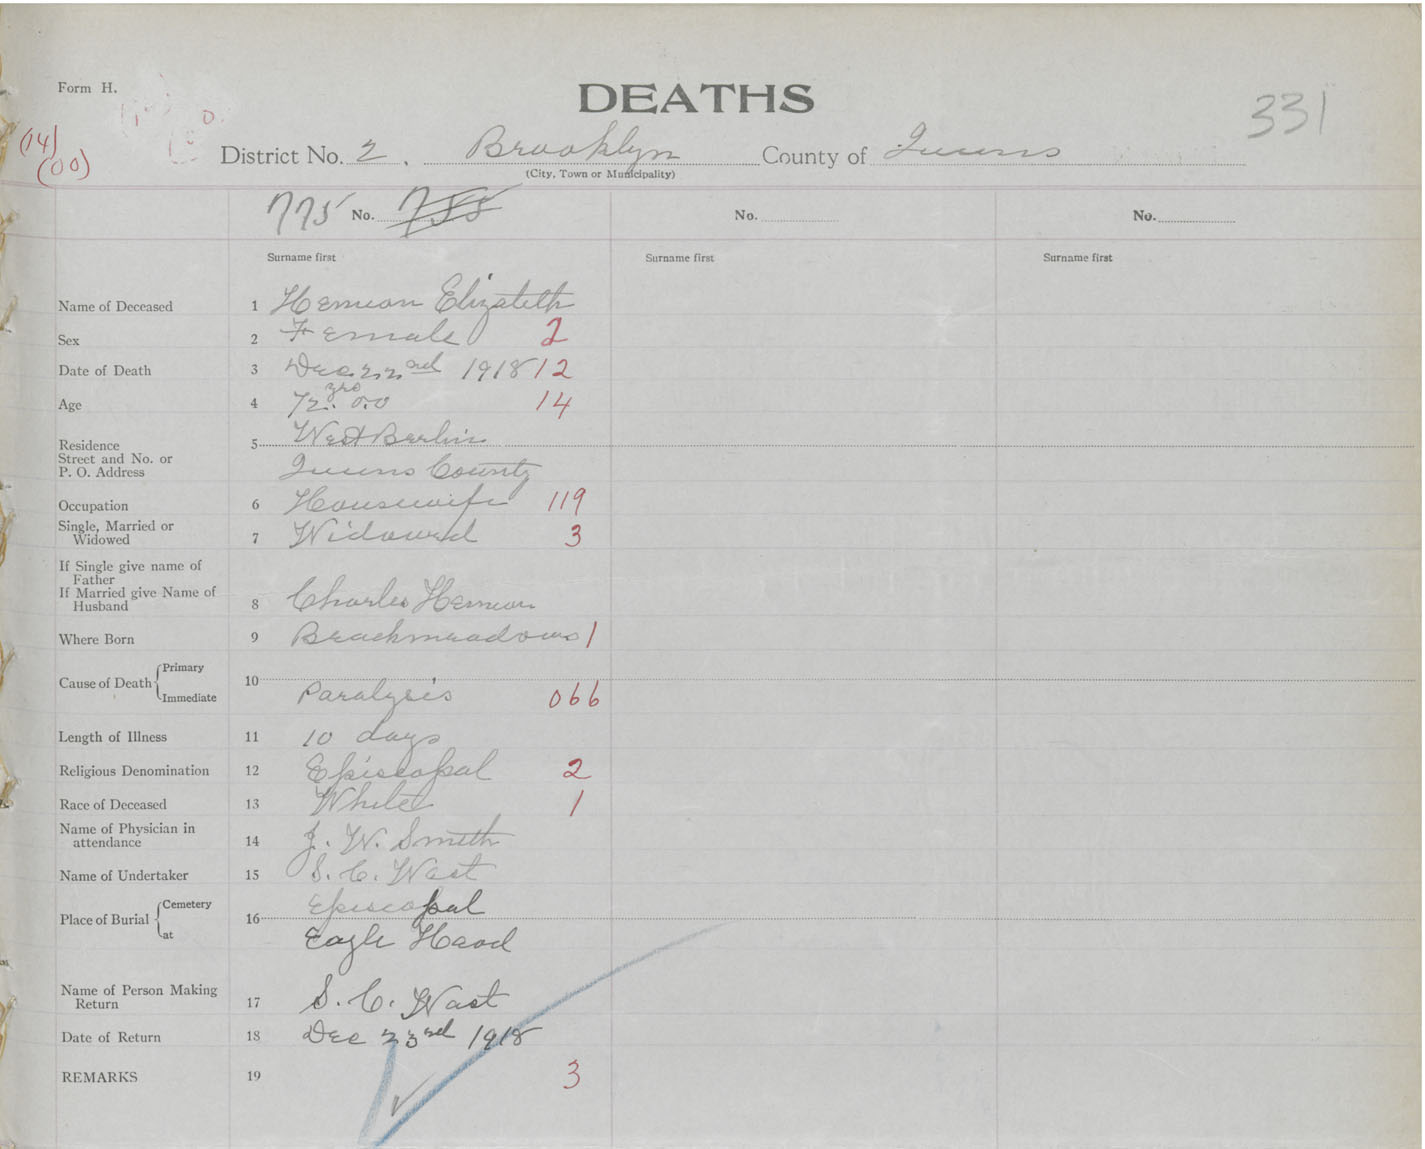 Form H.
DEATHS
331
(14)
(00)
District No. 2. Brooklyn County of Queens
(City, Town or Municipality)
775 No. 755 No. No.
Surname first Surname first Surname first
Name of Deceased 1 Hemeon Elizabeth
Sex 2 Female 2
Date of Death 3 Dec. 22nd 1918 12
Age 4 72 yrs 0.0 14
Residence 5 West Berlin
Street and No. or
P. O. Address Queens County
Occupation 6 Housewife 119
Single, Married or
Widowed 7 Widowed 3
If Single give name of
Father
If Married give Name of
Husband 8 Charles Hemeon
Where Born 9 Beachmeadows 1
Cause of Death Primary 10
Immediate Paralysis 066
Length of Illness 11 10 days
Religious Denomination 12 Episcopal 2
Race of Deceased 13 White 1
Name of Physician in
attendance 14 J. W. Smith
Name of Undertaker 15 S. C. Wast
Place of Burial Cemetery 16 Episcopal
at Eagle Head
Name of Person Making
Return 17 S. C. Wast
Date of Return 18 Dec 23rd 1918
REMARKS 19 3